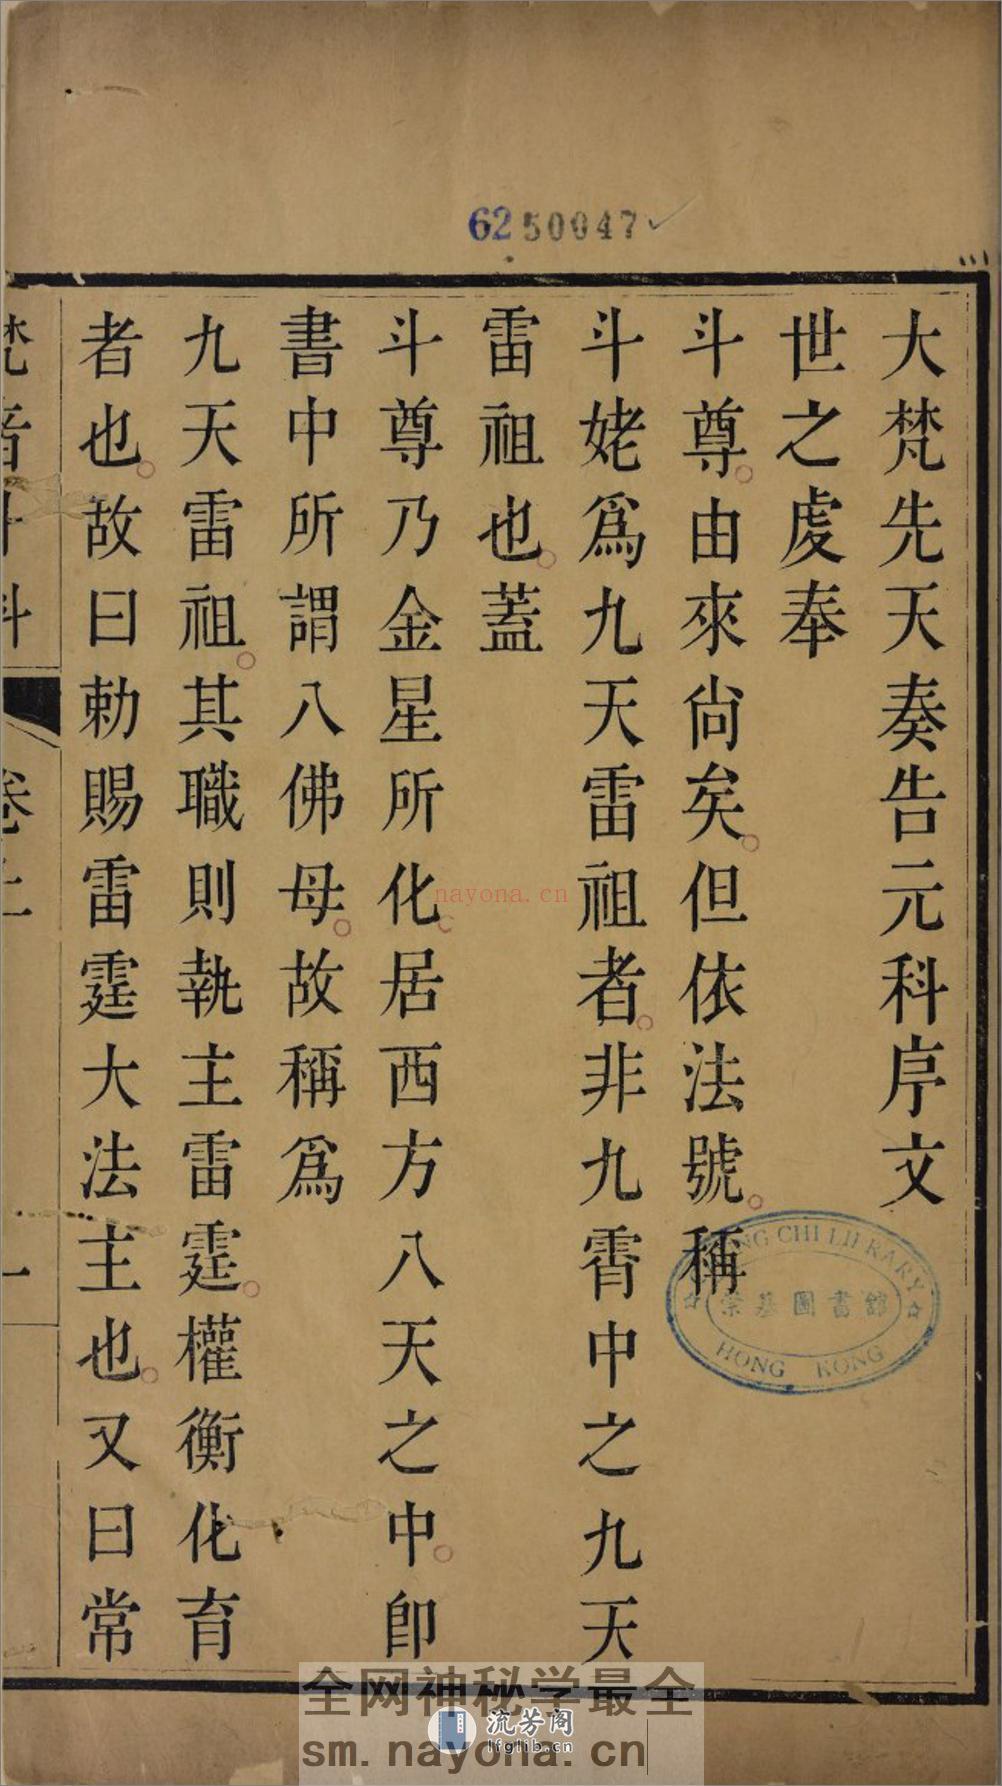 6250047
大梵先天奏告元科序文
世之虔奉
斗尊由來尙矣但依法號稱
斗姥爲九天雷祖者非九霄中之九天
雷祖也蓋
斗尊乃金星所化居西方八天之中卽
書中所謂八佛母故稱爲
九天雷祖其職則執主雷霆權衡化育
者也故曰勅賜雷霆大法主也又曰常
梵音斗科
卷上
一
崇基圖書館
HONG KONG
nayona.cn
全网神秘学最全
流芳阁
lfglib.cn
sm.nayona.cn